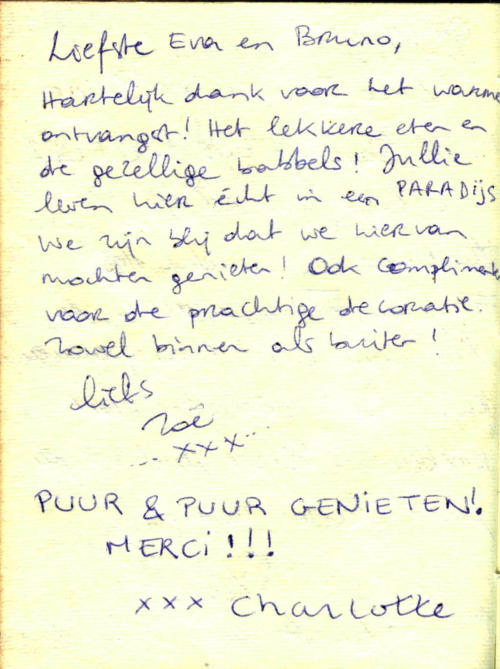 Liefste Eva en Bruno,
Hartelijk dank voor het warme
ontvangst! Het lekkere eten en
de gezellige babbels! Jullie
leven hier écht in een PARADijs
We zijn blij dat we hiervan
mochten genieten! Ook complimenten
voor de prachtige decoratie.
Zowel binnen als buiten!
liefs
Zoë
... xxx ...
PUUR & PUUR GENiETEN!
MERCi!!!
xxx Charlotte